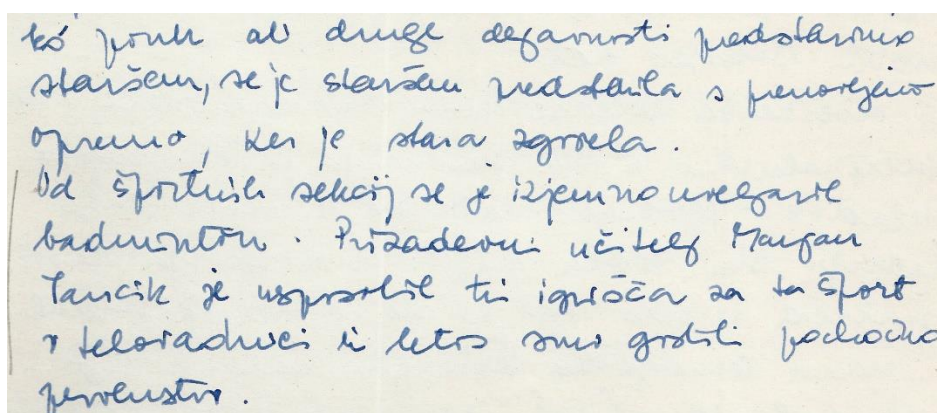 ko pouk ali druge dejavnosti predstavimo
staršem, se je staršem predstavila s prenovljeno
opremo, ker je stara zgorela.
Od športnih sekcij se je izjemno uveljavil
badminton. Prizadevni učitelj Marjan
je usposobil tri igrišča za ta šport
v telovadnici in letos smo gostili področno
prvenstvo.